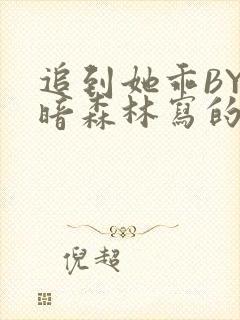 追到她乖BY
暗森林寫的
倪超